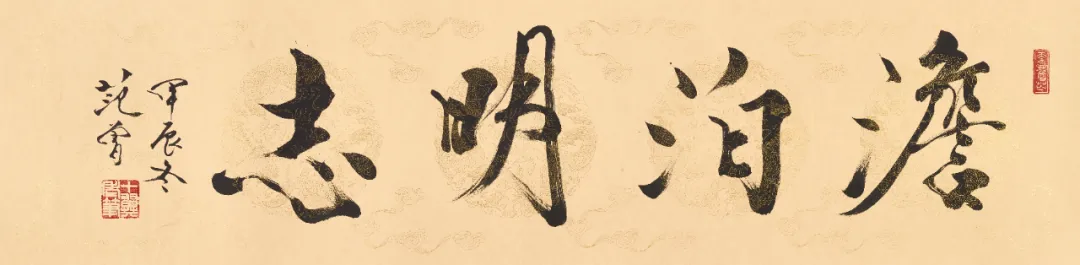 澹泊明志
甲辰冬
范曾